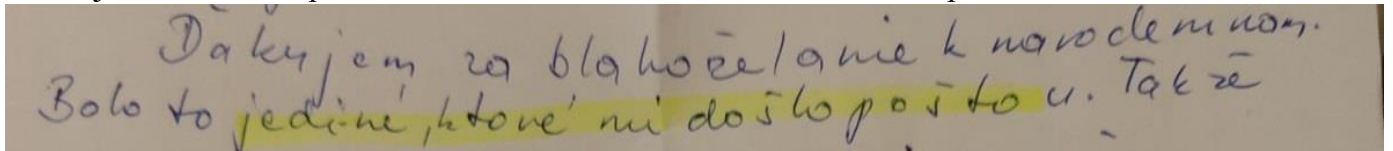 Ďakujem za blahoželanie k narodeninám.
Bolo to jediné, ktoré mi došlo poštou. Takže